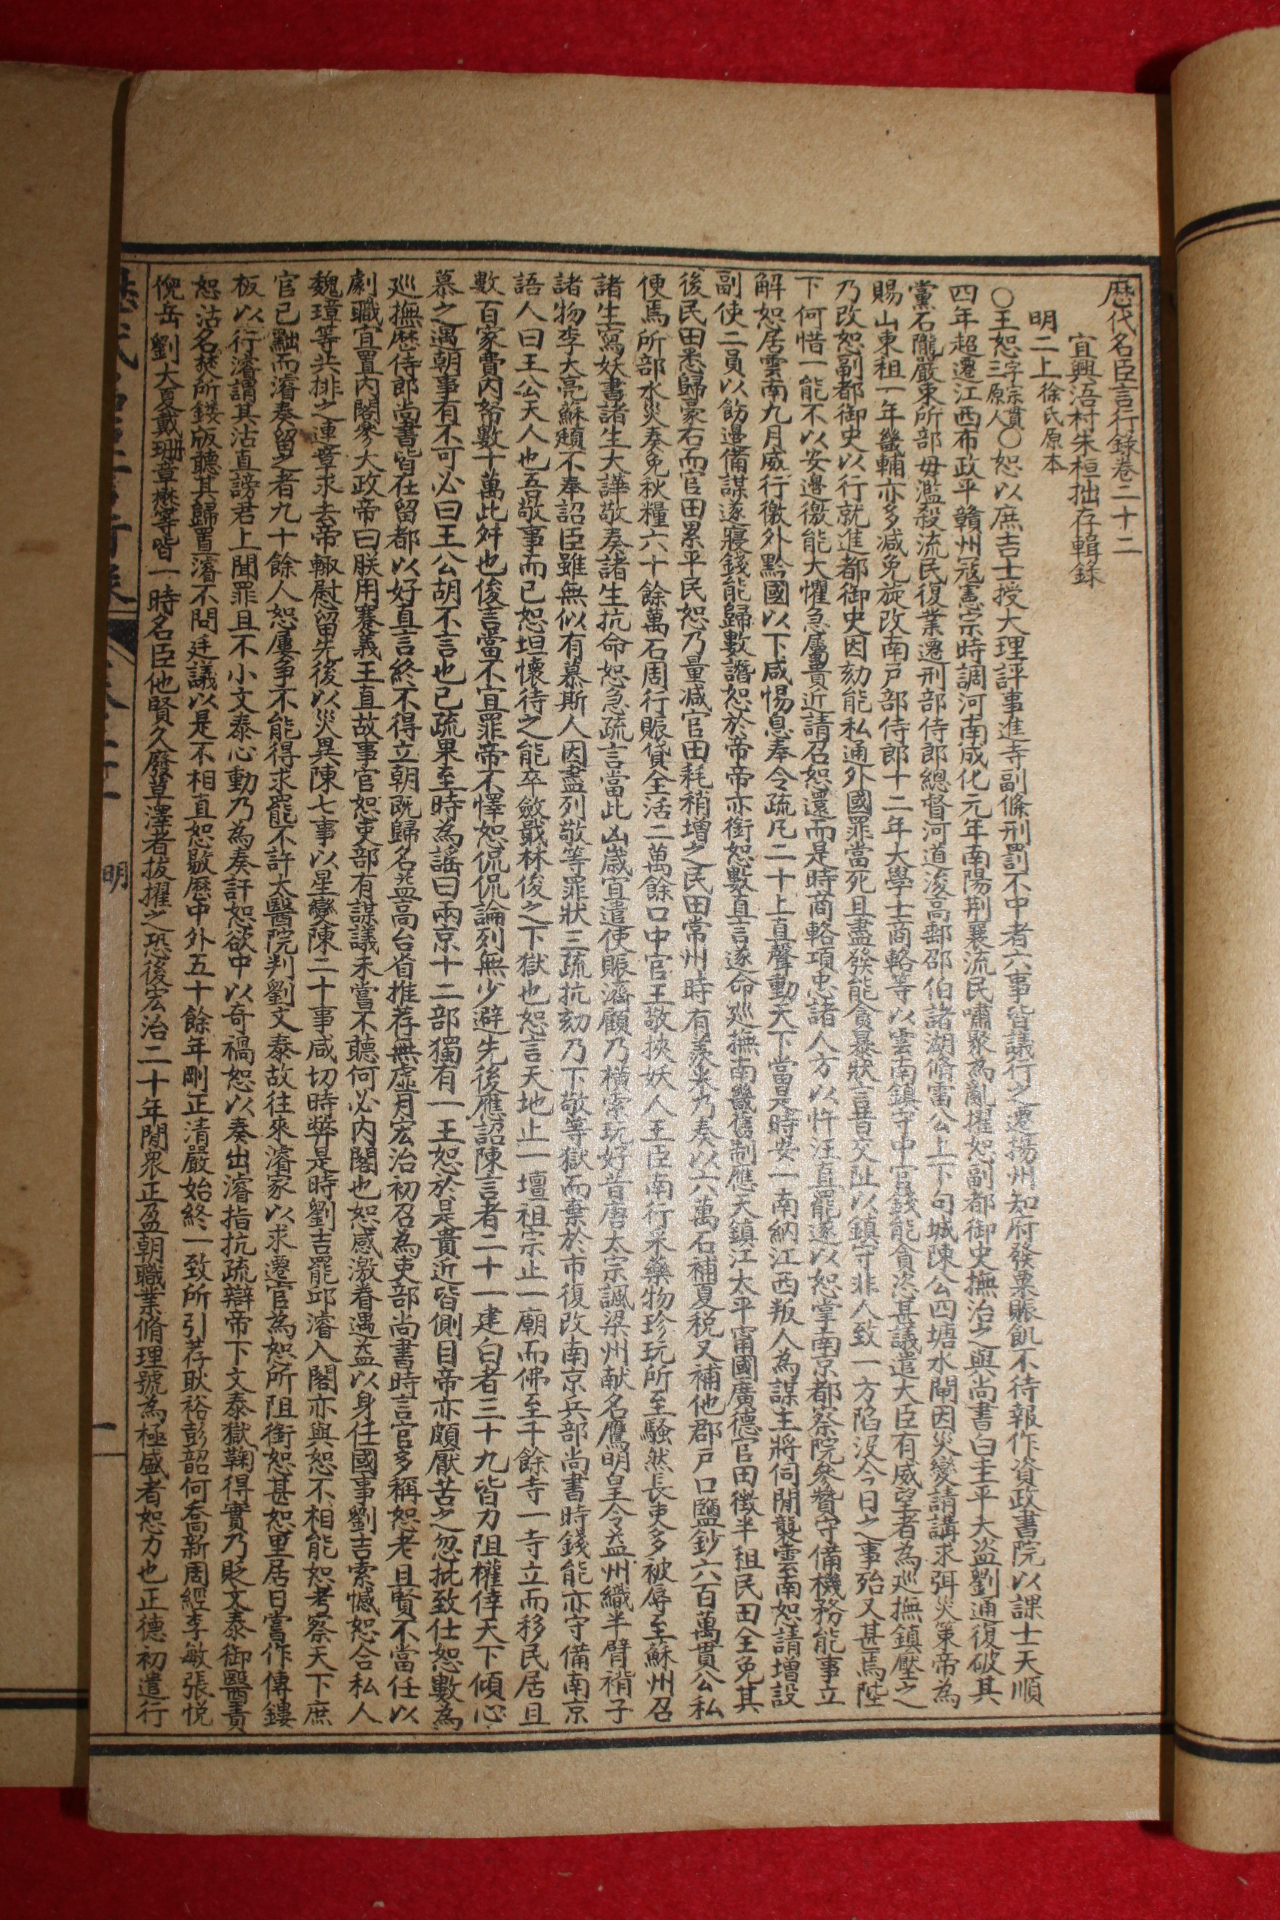 歷代名臣言行錄卷二十二
宜興浯村朱桓拙存輯錄
明二上徐氏原本
○王恕字宗貫三原人○恕以庶吉士授大理評事進寺副條刑罰不中者六事皆議行之遷揚州知府發粟賑飢不待報作資政書院以課士天順
四年超遷江西布政平贛州寇憲宗時調河南成化元年南陽荆襄流民嘯聚為亂擢恕副都御史撫治之與尚書白圭平大盜劉通復破其
黨石龍嚴束所部毋濫殺流民復業遷刑部侍郎總督河道浚高郵邵伯諸湖脩雷公上下句城陳公四塘水閘因災變請講求弭災策帝為
賜山東租一年畿輔亦多減免旋改南戸部侍郎十二年大學士商輅等以雲南鎮守中官錢能貪恣甚議遣大臣有威望者為巡撫鎮壓之
乃改恕副都御史以行就進都御史因劾能私通外國罪當死且盡發能貪暴狀言昔交趾以鎮守非人致一方陷沒今日之事殆又甚焉陛
下何惜一能不以安邊徼能大懼急屬貴近請召恕還而是時商輅項忠諸人方以忤汪直罷遂以恕掌南京都察院參贊守備機務能事立
解恕居雲南九月威行徼外黔國以下咸惕息奉令疏凡二十上直聲動天下當是時安南納江西叛人為謀主將伺閒襲雲南恕請增設
副使二員以飭邊備謀遂寢錢能歸數譖恕於帝帝亦銜恕數直言遂命巡撫南畿舊制應天鎮江太平甯國廣德官田徵半租民田全免其
後民田悉歸豪右而官田累平民恕乃量減官田耗稍增之民田常州時有羨米乃奏以六萬石補夏税又補他郡戸口鹽鈔六百萬貫公私
便焉所部水災奏免秋糧六十餘萬石周行賑貸全活二萬餘口中官王敬挾妖人王臣南行采藥物珍玩所至騷然長吏多被辱至蘇州召
諸生寫妖書諸生大譁敬奏諸生抗命恕急疏言當此凶歲宜遣使賑濟顧乃橫索玩好昔唐太宗諷梁州獻名鷹明皇令益州織半臂褙子
諸物李大亮蘇頲不奉詔臣雖無似有慕斯人因盡列敬等罪狀三疏抗劾乃下敬等獄而棄於市復改南京兵部尚書時錢能亦守備南京
語人曰王公天人也吾敬事而已恕坦懷待之能卒斂戢林俊之下獄也恕言天地止一壇祖宗止一廟而佛至千餘寺一寺立而移民居且
數百家費内帑數十萬此舛也俊言當不宜罪帝不懌恕侃侃論列無少避先後應詔陳言者二十一建白者三十九皆力阻權倖天下傾心
慕之遇朝事有不可必曰王公胡不言也已疏果至時為謠曰兩京十二部獨有一王恕於是貴近皆側目帝亦頗厭苦之忽批致仕恕數為
巡撫歷侍郎尚書皆在留都以好直言終不得立朝既歸名益高台省推荐無虛月宏治初召為吏部尚書時言官多稱恕老且賢不當任以
劇職宜置内閣參大政帝曰朕用蹇義王直故事官恕吏部有謀議未嘗不聽何必内閣也恕感激眷遇益以身任國事劉吉索憾恕合私人
魏璋等共排之連章求去帝輒慰留先後以災異陳七事以星變陳二十事咸切時弊是時劉吉罷邱濬入閣亦與恕不相能恕考察天下庶
官已黜而濬奏留之者九十餘人恕屢爭不能得求罷不許太醫院判劉文泰故往來濬家以求遷官為恕所阻銜恕甚恕里居日嘗作傳鏤
板以行濬謂其沽直謗君上聞罪且不小文泰心動乃為奏訐恕欲中以奇禍恕以奏出濬指抗疏辯帝下文泰獄鞫得實乃貶文泰御醫責
恕沽名燬所鋟版聽其歸置濬不問廷議以是不相直恕敭歷中外五十餘年剛正清嚴始終一致所引荐耿裕彭韶何喬新周經李敏張悦
倪岳劉大夏戴珊章懋等皆一時名臣他賢久廢草澤者拔擢之恐後宏治二十年閒衆正盈朝職業脩理號為極盛者恕力也正德初遣行
明
一